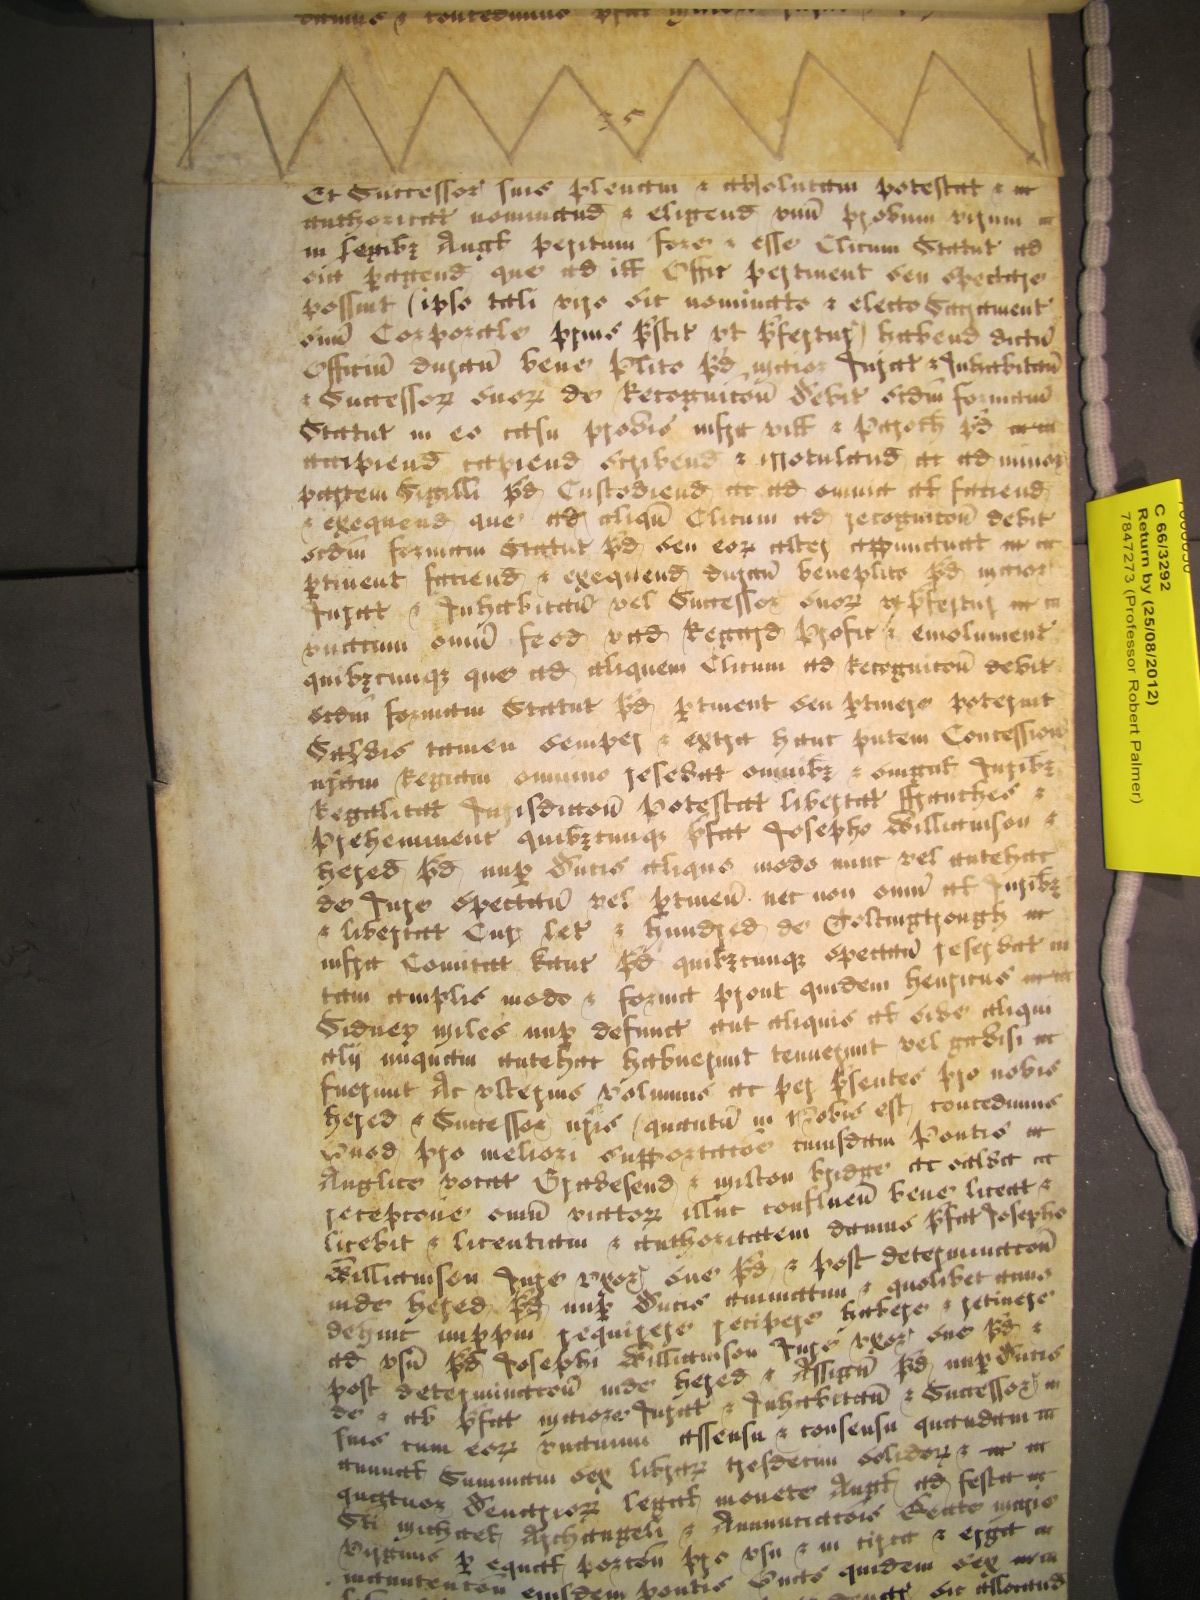 damus & concedimus pfat
35
Et Successor suis plenam & absolutam potestat &
authoritat nominand & eligend unu probum virum
in legibz Angl peritum fore & esse Clicum Statut ad
ea pagend que ad ill Offic pertinent seu spectare
possint (ipso tali viro sic nominato & electo Sacrament
suu Corporale prius pstit ut pfertur) habend dictu
Officiu duran bene plito pd maior Jurat & Inhabitan
& Successorz suorz de Recognicon debit scdm formam
Statut in eo casu provis infra vill & Paroch pd
accipiend capiend scribend & irrotuland ac ad minor
partem Sigilli pd Custodiend ac ad omnia al faciend
& exequend que ad aliqu Clicum ad recognicon debit
scdm formam Statut pd seu eorz alter appunctuat
ptinent faciend & exequend duran beneplito pd maior
Jurat & Inhabitan vel Successor suorz ut pfertur
unacum omn feod vad Regard Profic & emolument
quibzcunqz que ad aliquem Clicum ad Recognicon debit
scdm formam Statut pd ptinent seu ptinere poterint
Salvis tamen semper & extra hanc pntem Concession
nram Regiam omnino reservat omnibz & singul Juribz
Regalitat Jurisdiccon Potestat libertat Franches &
Preheminent quibzcunqz pfat Josepho Williamson &
hered pd nup Ducis aliquo modo nunc vel antehac
de Jure spectan vel ptinen nec non omn al Juribz
& libertat Cur let & hundred de Toltingtrough
infra Comitat Kanc pd quibzcunqz spectan reservat in
tam amplis modo & forma prout quidem Henricus
Sidney miles nup defunct aut aliquis al sive aliqui
alij unquam antehac habuerunt tenuerunt vel gavisi
fuerunt Ac ulterius volumus ac per psentes pro nobis
hered & Successor nris (quantu in Nobis est) concedimus
Quod pro meliori supportacoe cuiusdam Pontis
Anglice vocat Gravesend & Milton bridge ac salva
recepcone omn viatorz illuc confluen bene liceat &
licebit & licentiam & authoritatem damus pfat Josepho
Williamson Jure uxor sue pd & post determinacon
inde hered pd nup Ducis annuatim & quolibet anno
dehinc imppm requirere recipere habere & retinere
ad usu pd Josephi Williamson Jure uxor sue pd &
post determinacon inde hered & Assign pd nup Ducis
de & ab pfat maiore Jurat & Inhabitan & Successor
suis cum eorz unanimi assensu & consensu quandam
annual Summam sex librarz tresdecim solidorz &
quatuor Denariorz legal monete Angl ad festa
Sci Michael Archangeli & Annunciacois Beate Marie
Virginis p equal porcon pro usu & in circa & erga
manutencon eiusdem pontis Quas quidem sex
sic allocand
C 66/3292
Return by (25/08/2012)
7847273 (Professor Robert Palmer)